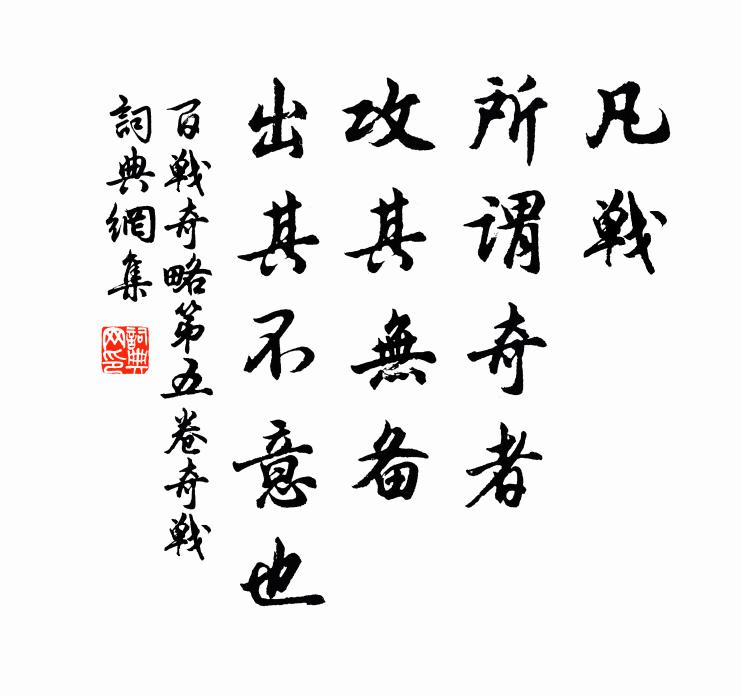 凡戰
所謂奇者
攻其無备
出其不意也
百戰奇略第五卷奇戰
詞典網集
詞典
网印